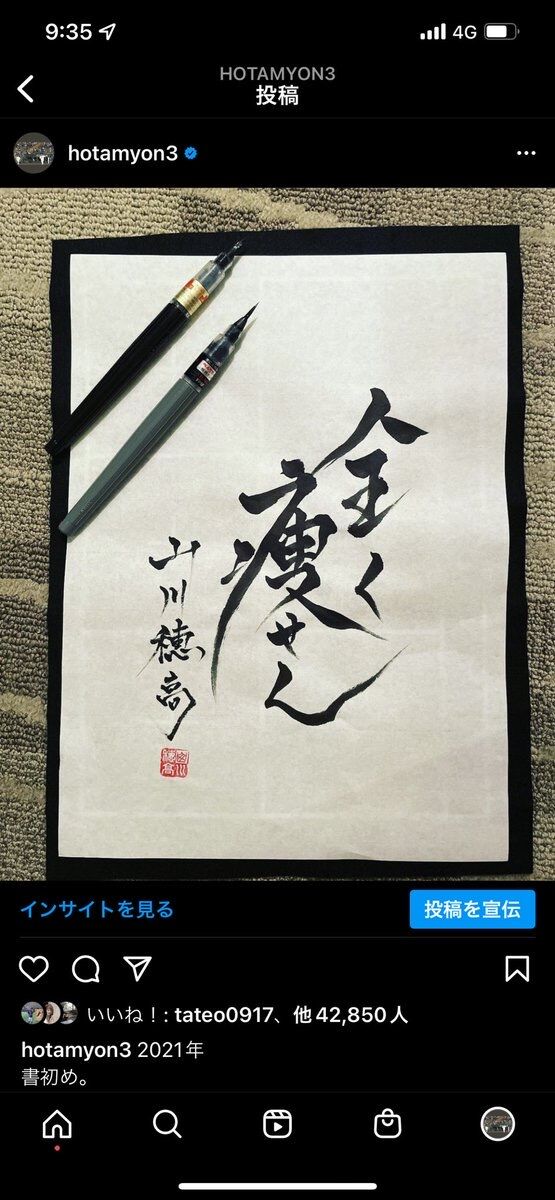 9:35
4G
HOTAMYON3
投稿
hotamyon3
全く
痩せん
山川穂高
インサイトを見る
投稿を宣伝
いいね！: tateo0917、他42,850人
hotamyon3 2021年
書初め。